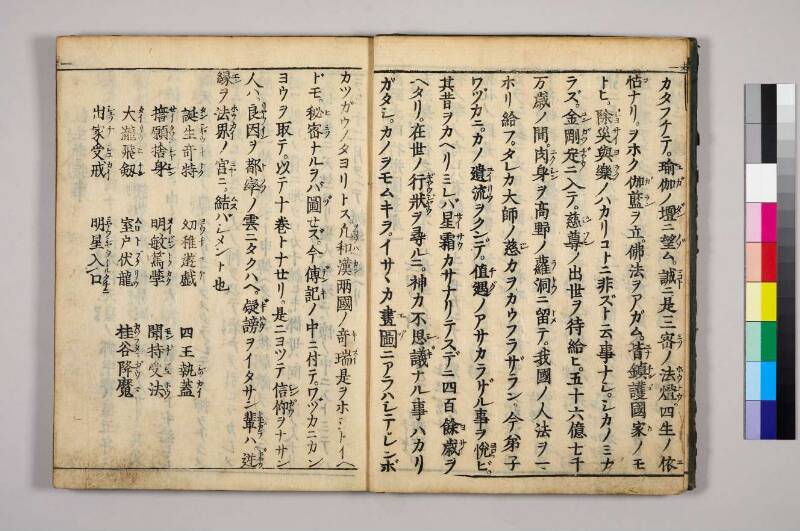 カタフチテ。瑜伽ノ壇ニ望ム。誠ニ是三密ノ法燈。四生ノ依
怙ナリ。ヲホク伽藍ヲ立。佛法ヲアガム。皆鎮護國家ノモ
トヒ。除災與樂ノハカリコトニ非ズト云事ナシ。シカノミナ
ラズ。金剛定ニ入テ。慈尊ノ出世ヲ待給ヒ。五十六億七千
万歳ノ間。肉身ヲ高野ノ蘿洞ニ留テ。我國ノ人法ヲ一
ホリ給フ。タレカ大師ノ慈カヲカウフラザラン。今弟子
ワヅカニ。カノ遺流ヲクンデ。値遇ノアサカラザル事ヲ悦ビ。
其昔ヲカヘリミレバ。星霜カサナリテスデニ四百餘歳ヲ
ヘタリ。在世ノ行狀ヲ尋ルニ。神力不思議ナル事ハカリ
ガタシ。カノヲモムキヲ。イサヽカ畫圖ニアラハシテ。シンボ
カツガウノタヨリトス。凡和漢兩國ノ奇瑞是ヲホシトイヘ
ドモ。秘密ナルヲバ圖セズ。今傳記ノ中ニ付テ。ワヅカニカン
ヨウヲ取テ。以テ十巻トナセリ。是ニヨツテ信仰ヲナサン
人ハ。良因ヲ都率ノ雲ニタクハヘ。疑謗ヲイタサン輩ハ。逆
縁ヲ法界ノ宮ニ。結バシメント也
誕生奇特 幼稚遊戯 四王執蓋
捨身 明敏篤學 聞持受法
大瀧飛劔 室戸伏龍 桂谷降魔
出家受戒 明星入口